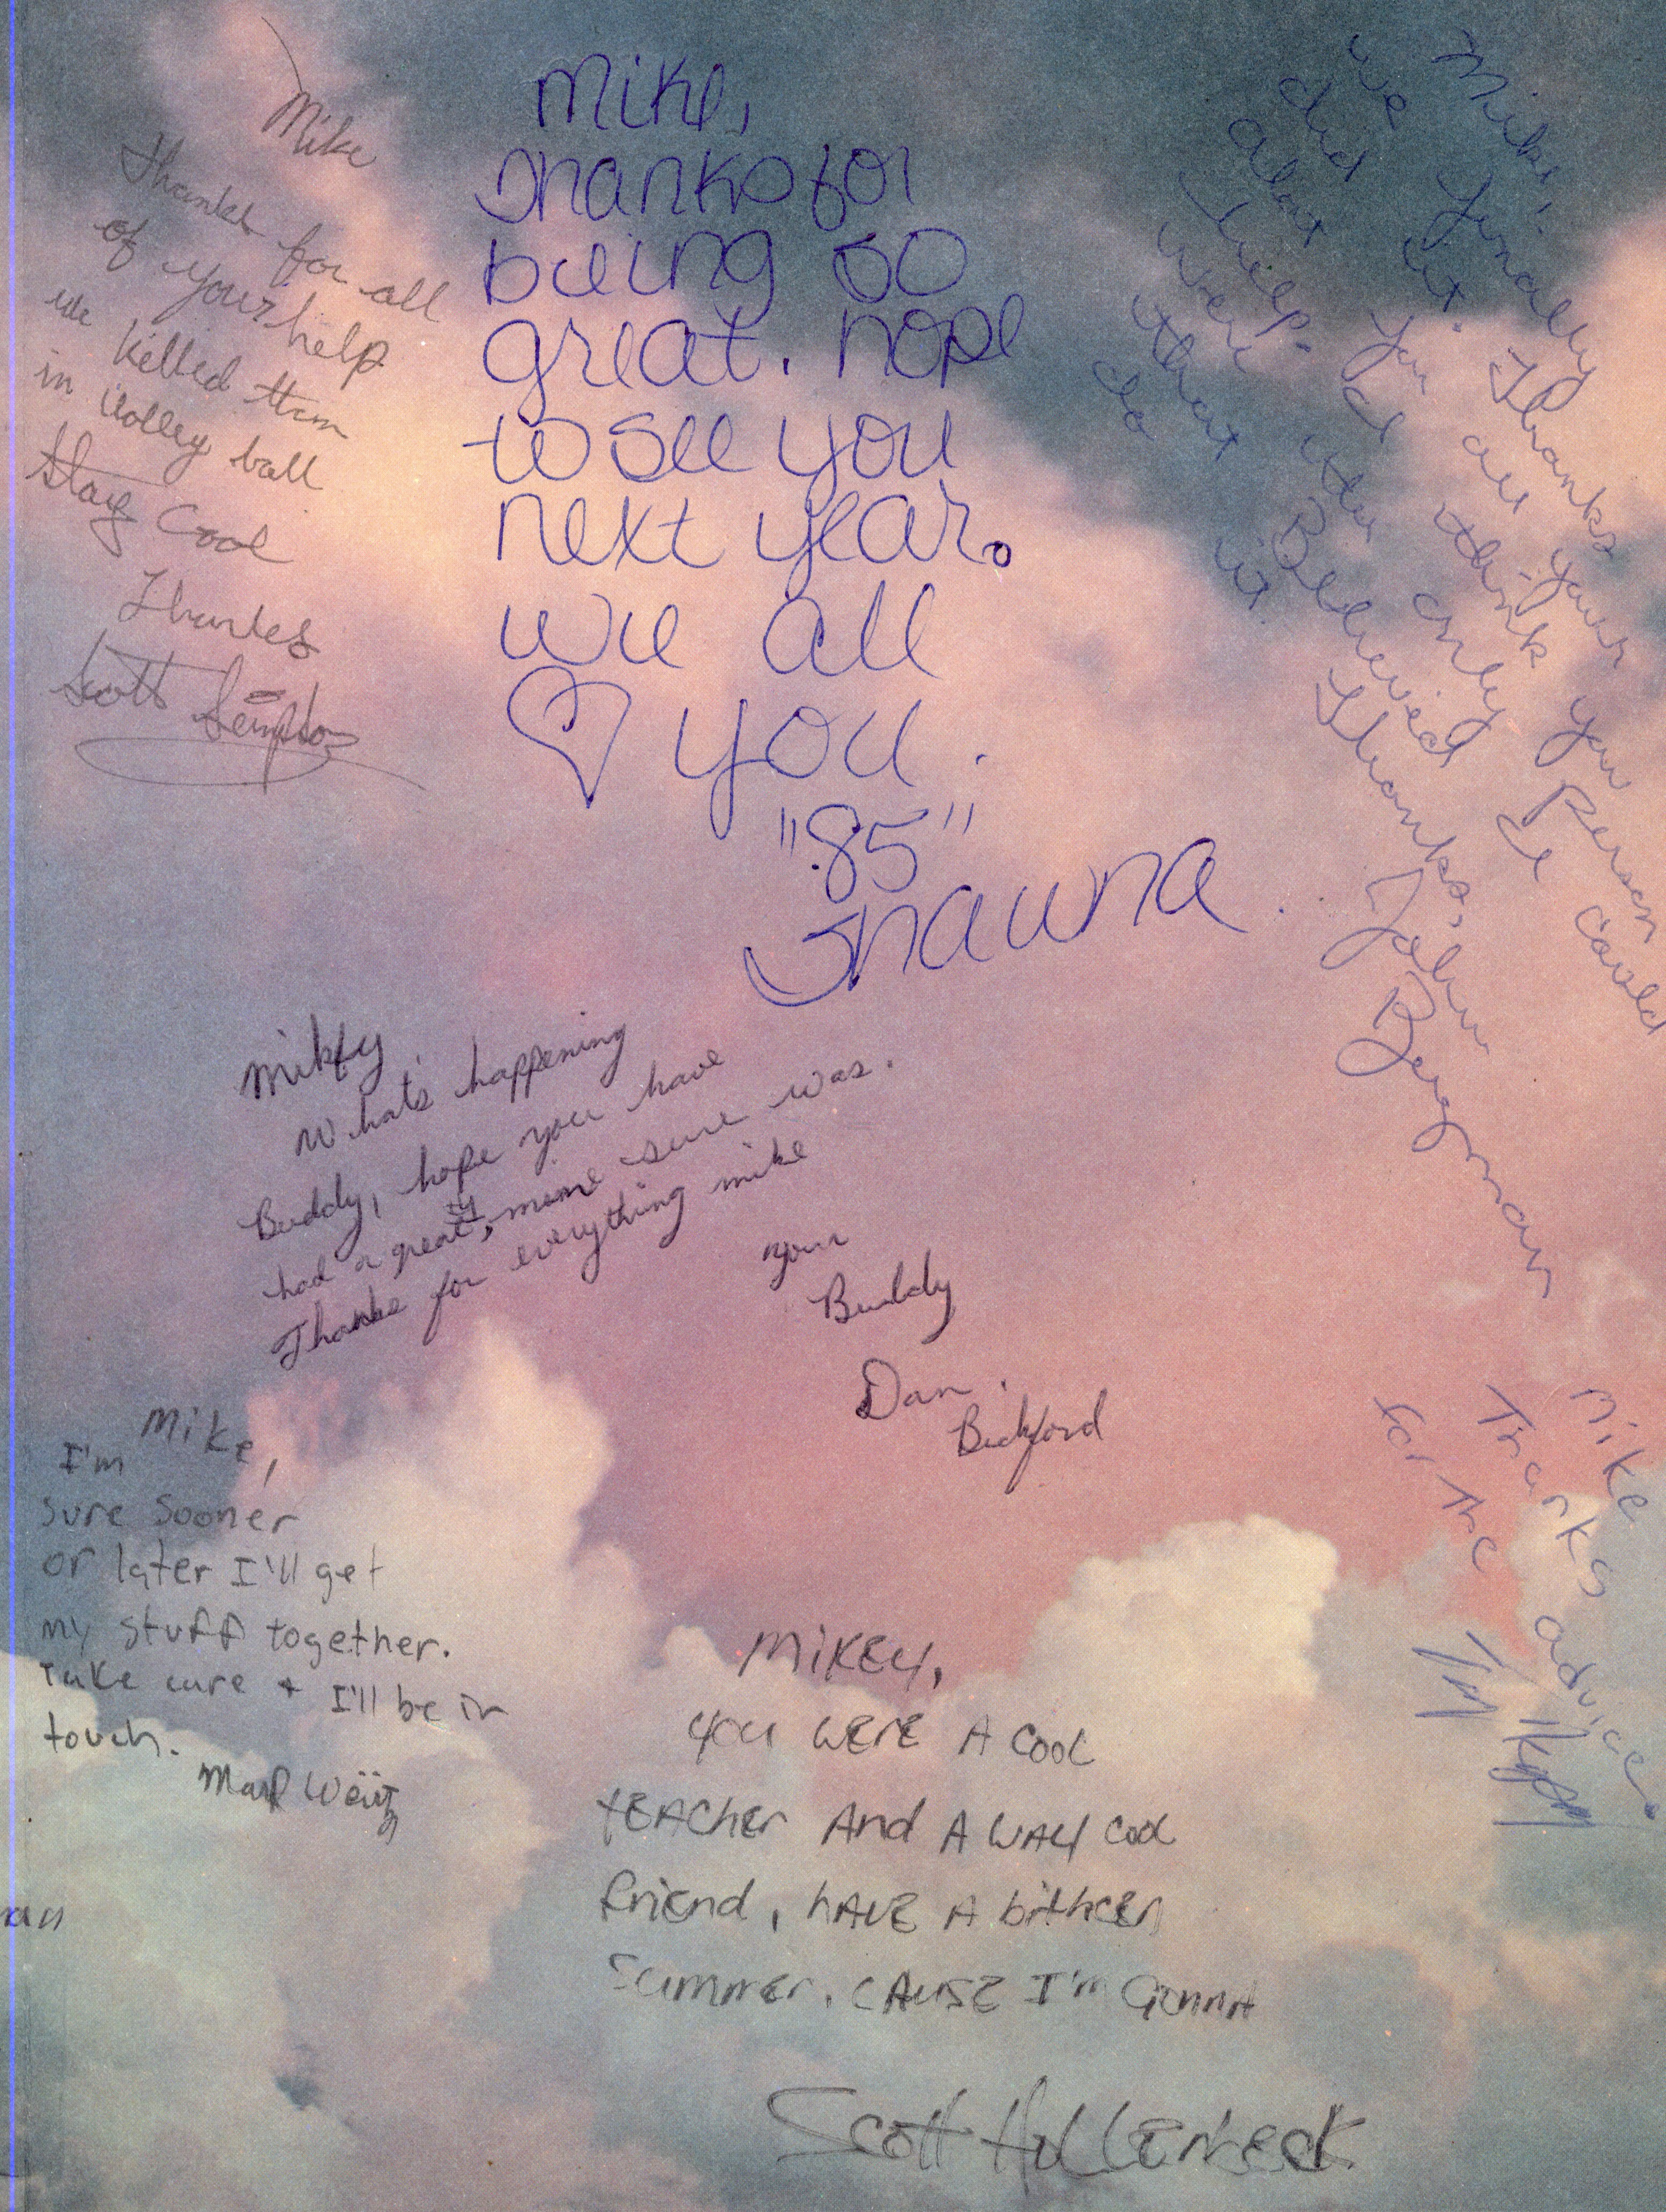 Mike
Thanks for all
of your help
we killed them
in volley ball
Stay Cool
Thanks
Scott
Mike,
Thanks for
being so
great. hope
to see you
next year.
we all
♡ you.
"85"
Shawna
Mike,
we finally
did it. Thanks
alot for all your
help. I think you
were the only person
that Believed I could
do it.
Thanks,
John Bergman
Mikey
Whats happening
Buddy, hope you have
had a great yr, mine sure was.
Thanks for everything mike
your
Buddy
Dan
Bickford
Mike,
I'm
sure sooner
or later I'll get
my stuff together.
Take care + I'll be in
touch.
Mike
Thanks
for The advice.
MiKEY,
you WERE A cool
tEACher And A WAY cool
friend, hAVE A bithcen
Summer, cAUSE I'm Gonna
Scott Hollenbeck